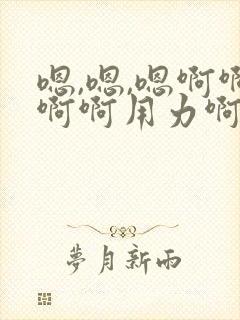 嗯,嗯,嗯啊啊
啊啊用力啊
夢月新雨